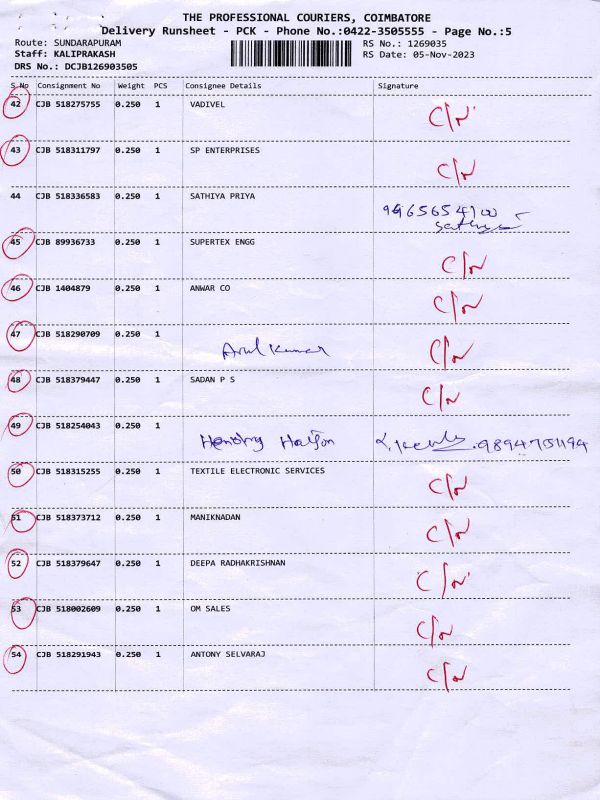 THE PROFESSIONAL COURIERS, COIMBATORE
Delivery Runsheet - PCK - Phone No.:0422-3505555 - Page No.:5
Route: SUNDARAPURAM RS No.: 1269035
Staff: KALIPRAKASH RS Date: 05-Nov-2023
DRS No.: DCJB126903505
S.No Consignment No Weight PCS Consignee Details Signature
42 CJB 518275755 0.250 1 VADIVEL C/N
43 CJB 518311797 0.250 1 SP ENTERPRISES C/N
44 CJB 518336583 0.250 1 SATHIYA PRIYA
9965654700
45 CJB 89936733 0.250 1 SUPERTEX ENGG C/N
46 CJB 1404879 0.250 1 ANWAR CO C/N
47 CJB 518290709 0.250 1
Arul Kumar C/N
48 CJB 518379447 0.250 1 SADAN P S C/N
49 CJB 518254043 0.250 1
50 CJB 518315255 0.250 1 TEXTILE ELECTRONIC SERVICES C/N
51 CJB 518373712 0.250 1 MANIKNADAN C/N
52 CJB 518379647 0.250 1 DEEPA RADHAKRISHNAN C/N
53 CJB 518002609 0.250 1 OM SALES C/N
54 CJB 518291943 0.250 1 ANTONY SELVARAJ C/N